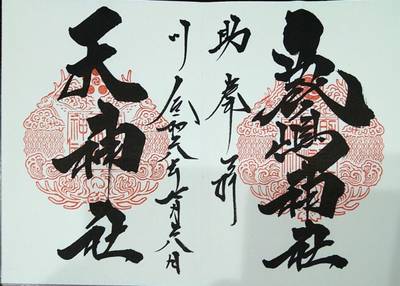 嚴嶋神社
助 奉拝
川 令和六年七月六日
天神社